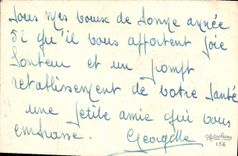 Tous mes vœux de bonne année
et qu'il vous apportent joie
bonheur et un prompt
retablissement de votre santé
une petite amie qui vous
embrasse.
Georgette
156